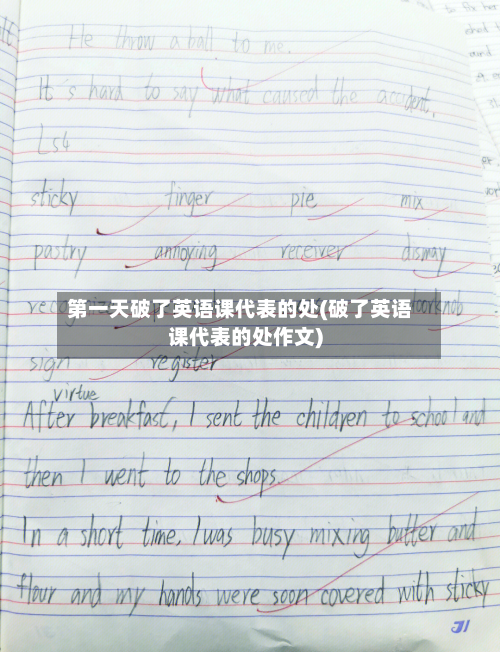 He throw a ball to me.
It's hard to say what caused the accident.
Ls4
sticky finger pie mix
pastry annoying receiver dismay
第一天破了英语课代表的处(破了英语
课代表的处作文)
recognize doorknob
sign register
virtue
After breakfast, I sent the children to school and
then I went to the shops.
In a short time, I was busy mixing butter and
flour and my hands were soon covered with sticky